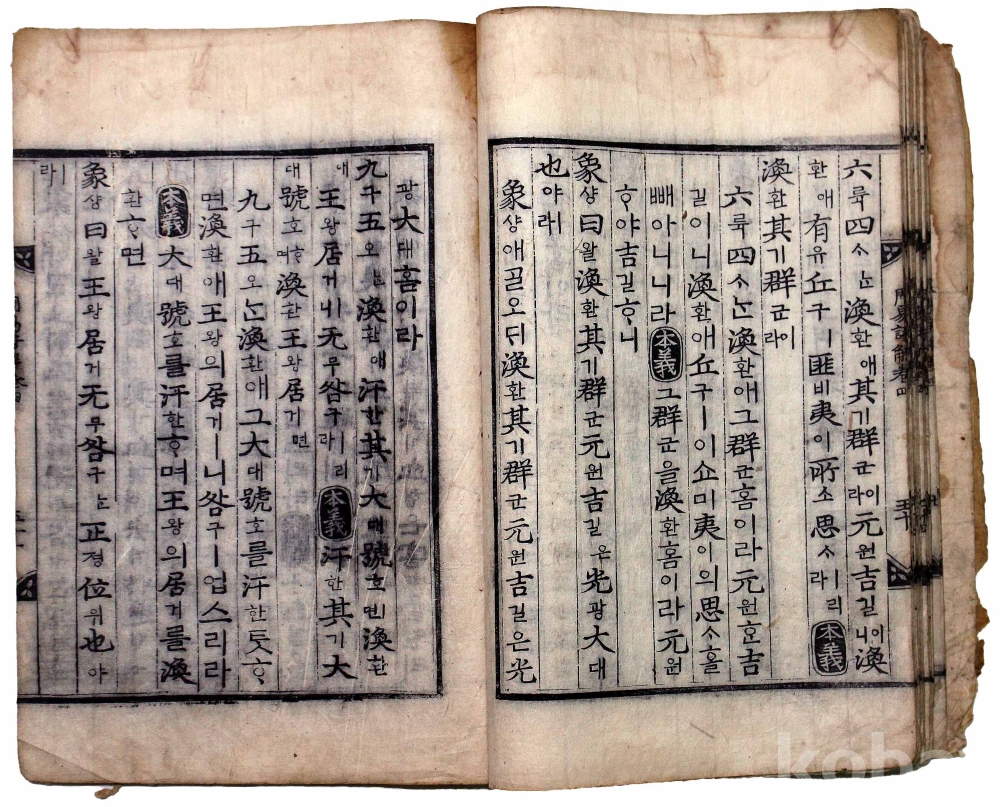 六륙四ᄉᆞᄂᆞᆫ渙환애其기群군이라元원吉길이니渙
환애有유丘구ㅣ匪비夷이所소思ᄉᆞㅣ리라本義
渙환其기群군이라
六륙四ᄉᆞᄂᆞᆫ渙환애그群군홈이라元원ᄒᆞᆫ吉
길이니渙환애丘구ㅣ이쇼미夷이의思ᄉᆞ홀
빼아니니라本義그群군을渙환홈이라元원
ᄒᆞ야吉길ᄒᆞ니
象샹曰왈渙환其기群군元원吉길은光광大대
也야라
象샹애ᄀᆞᆯ오ᄃᆡ渙환其기群군元원吉길은光
광大대홈이라
九구五오ᄂᆞᆫ渙환애汗한其기大대號호ㅣ면渙환
王왕居거ㅣ니无무咎구ㅣ리라本義汗한其기大
대號호ᄒᆞ며渙환王왕居거ㅣ면
九구五오ᄂᆞᆫ渙환애그大대號호를汗한ᄐᆞᆺᄒᆞ
면渙환애王왕의居거ㅣ니咎구ㅣ업스리라
本義大대號호를汗한ᄒᆞ며王왕의居거를渙
환ᄒᆞ면
象샹曰왈王왕居거无무咎구ᄂᆞᆫ正졍位위也야
ㅣ라